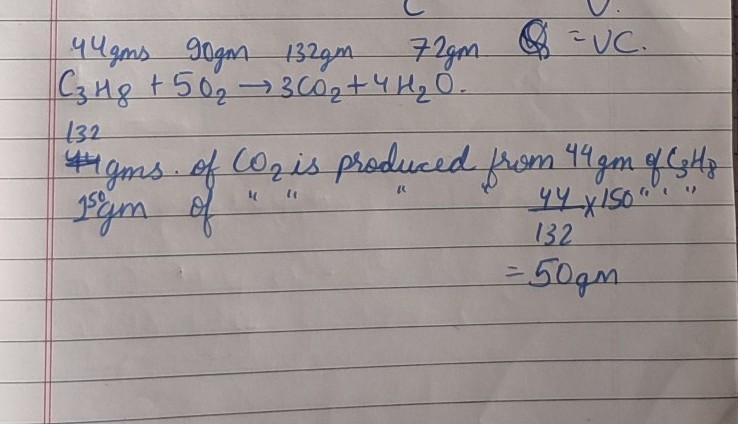 44gms 90gm 132gm 72gm = VC.
C3H8 + 5O2 → 3CO2 + 4H2O.
132
gms. of CO2 is produced from 44gm of C3H8
150gm of " " " " 44/132 x 150 " " "
= 50gm